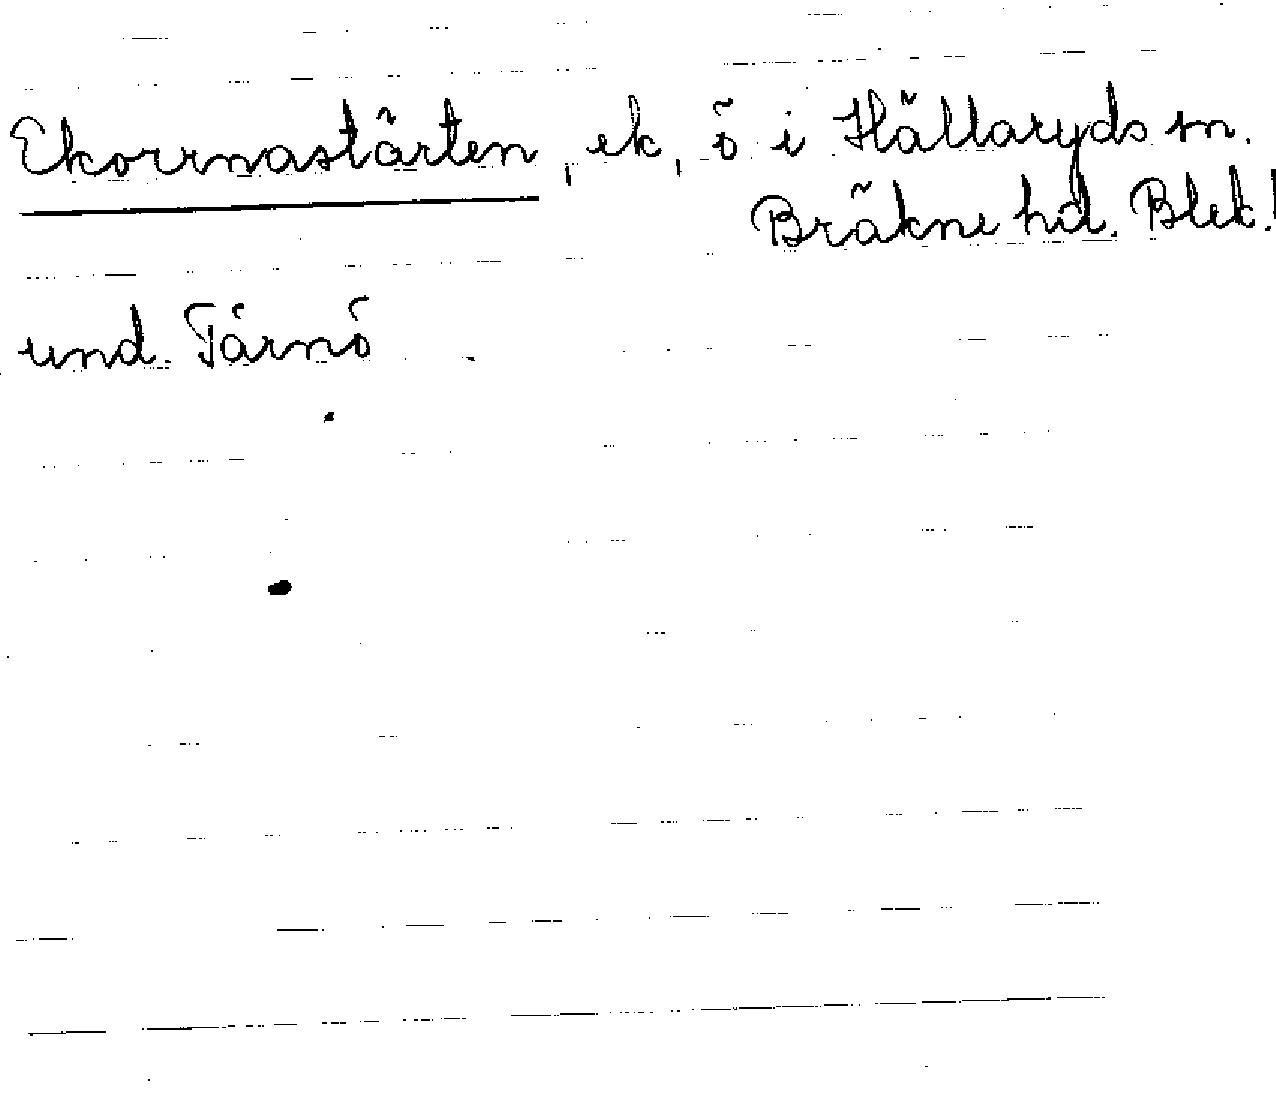 Ekorrnastärten, ek, ö i Hällaryds sn.
Bräkne hd. Blek.!
und. Tärnö